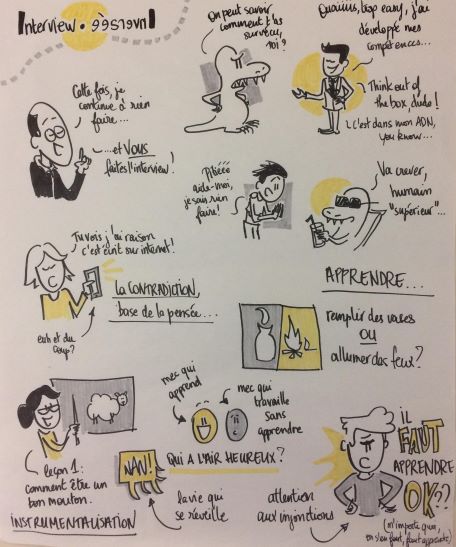 Interview • inversée
On peut savoir
comment t'as
survécu,
toi ?
Ouaiiiis, trop easy, j'ai
développé mes
compétences...
Think out of
the box, dude !
C'est dans mon ADN,
you know...
Cette fois, je
continue à rien
faire...
...et VOUS
faites l'interview !
Pitiééé
aide-moi,
je sais rien
faire !
Va crever,
humain
"supérieur"...
Tu vois j'ai raison
c'est écrit sur internet !
euh et du
coup ?
La CONTRADICTION,
base de la pensée...
APPRENDRE...
remplir des vases
OU
allumer des feux ?
mec qui
apprend
mec qui
travaille
sans
apprendre
QUI A L'AIR HEUREUX ?
leçon 1 :
comment être un
bon mouton.
INSTRUMENTALISATION
NAN !
la vie qui
se réveille
attention
aux injonctions
iL
FAUT
APPRENDRE
OK ??
(n'importe quoi,
on s'en fout, faut apprendre)